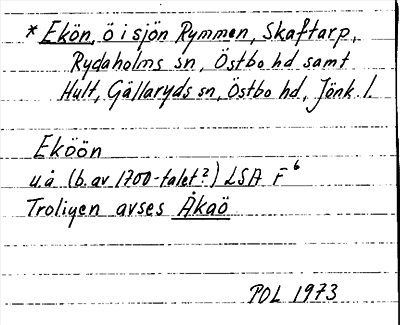 * Ekön, ö i sjön Rymmen, Skaftarp,
Rydaholms sn, Östbo hd samt
Hult, Gällaryds sn, Östbo hd, Jönk. l.
Eköön
u.å (b. av 1700-talet?) LSA F⁶
Troligen avses Åkaö
POL 1973